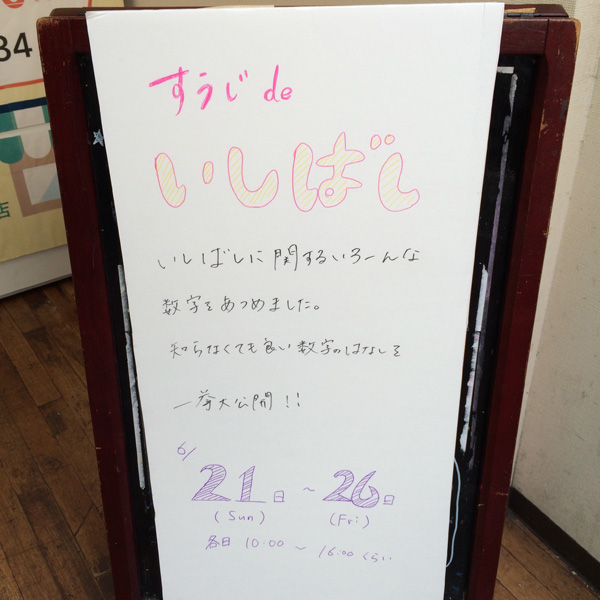 34
店
すうじ de
いしばし
いしばしに関するいろーんな
数字をあつめました。
知らなくても良い数字のはなしを
一挙大公開!!
6/
21日 ~ 26日
(Sun) (Fri)
各日 10:00 ~ 16:00 くらい